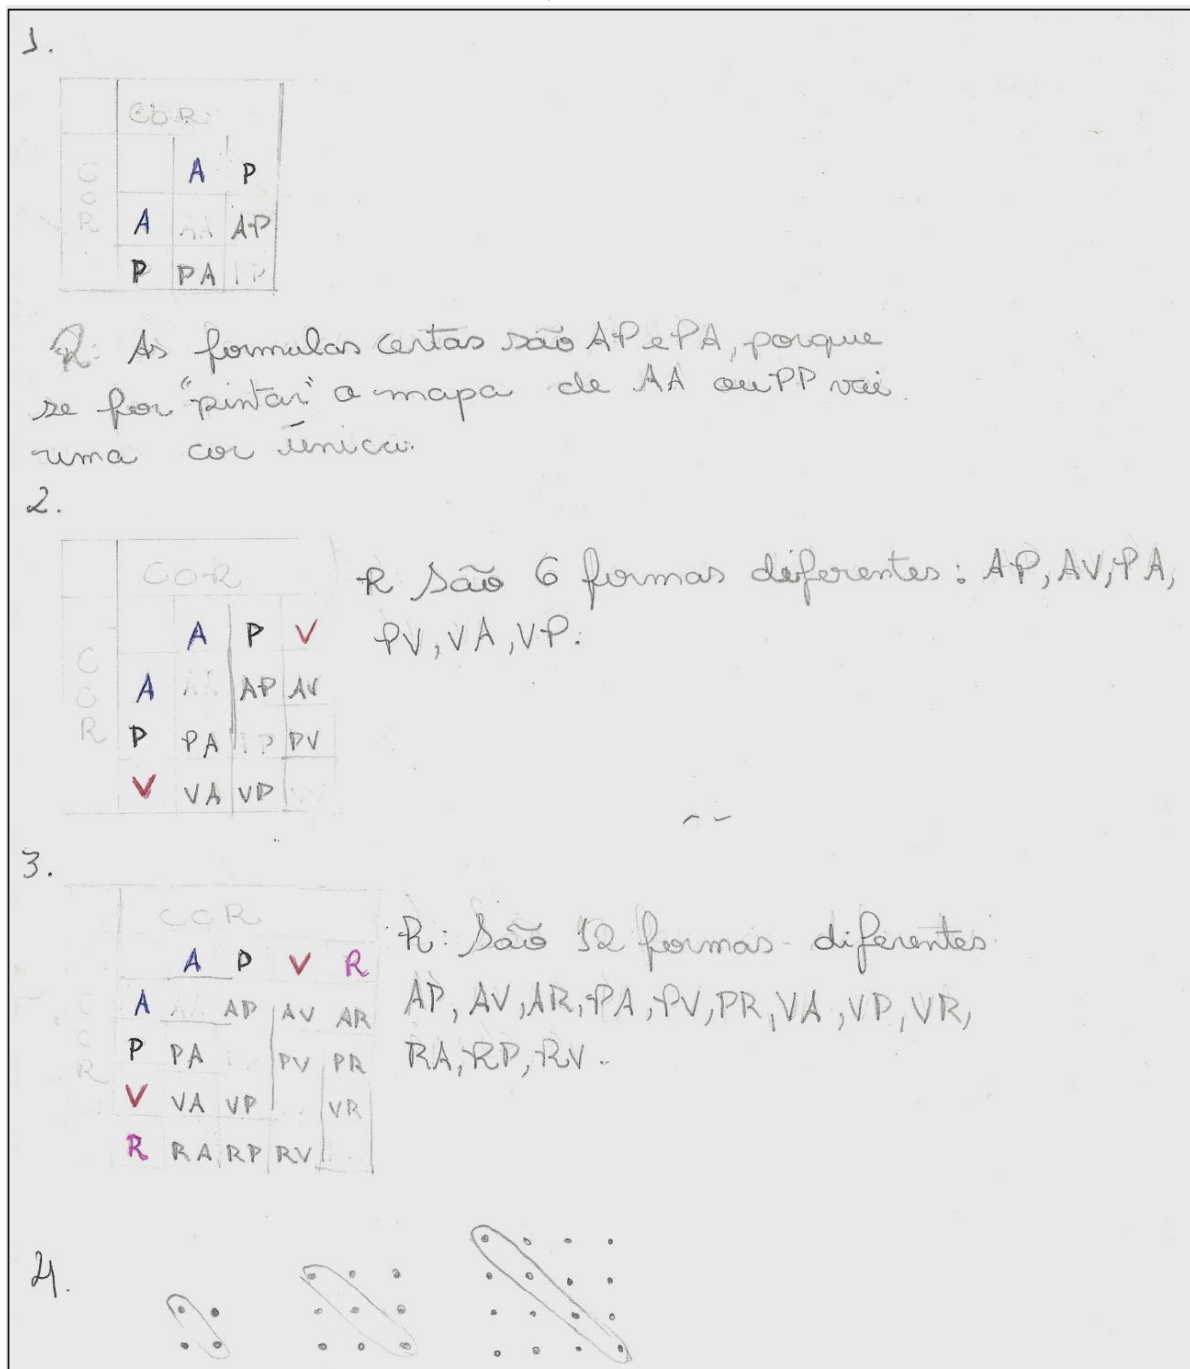 1.
COR
COR
A P
A AA AP
P PA PP
R: As formulas certas são AP e PA, porque
se for "pintar" o mapa de AA ou PP vai
uma cor única.
2.
COR
COR
A P V
A AA AP AV
P PA PP PV
V VA VP
R São 6 formas diferentes: AP, AV, PA,
PV, VA, VP.
3.
COR
COR
A P V R
A AA AP AV AR
P PA PV PR
V VA VP VR
R RA RP RV
R: São 12 formas diferentes
AP, AV, AR, PA, PV, PR, VA, VP, VR,
RA, RP, RV.
4.